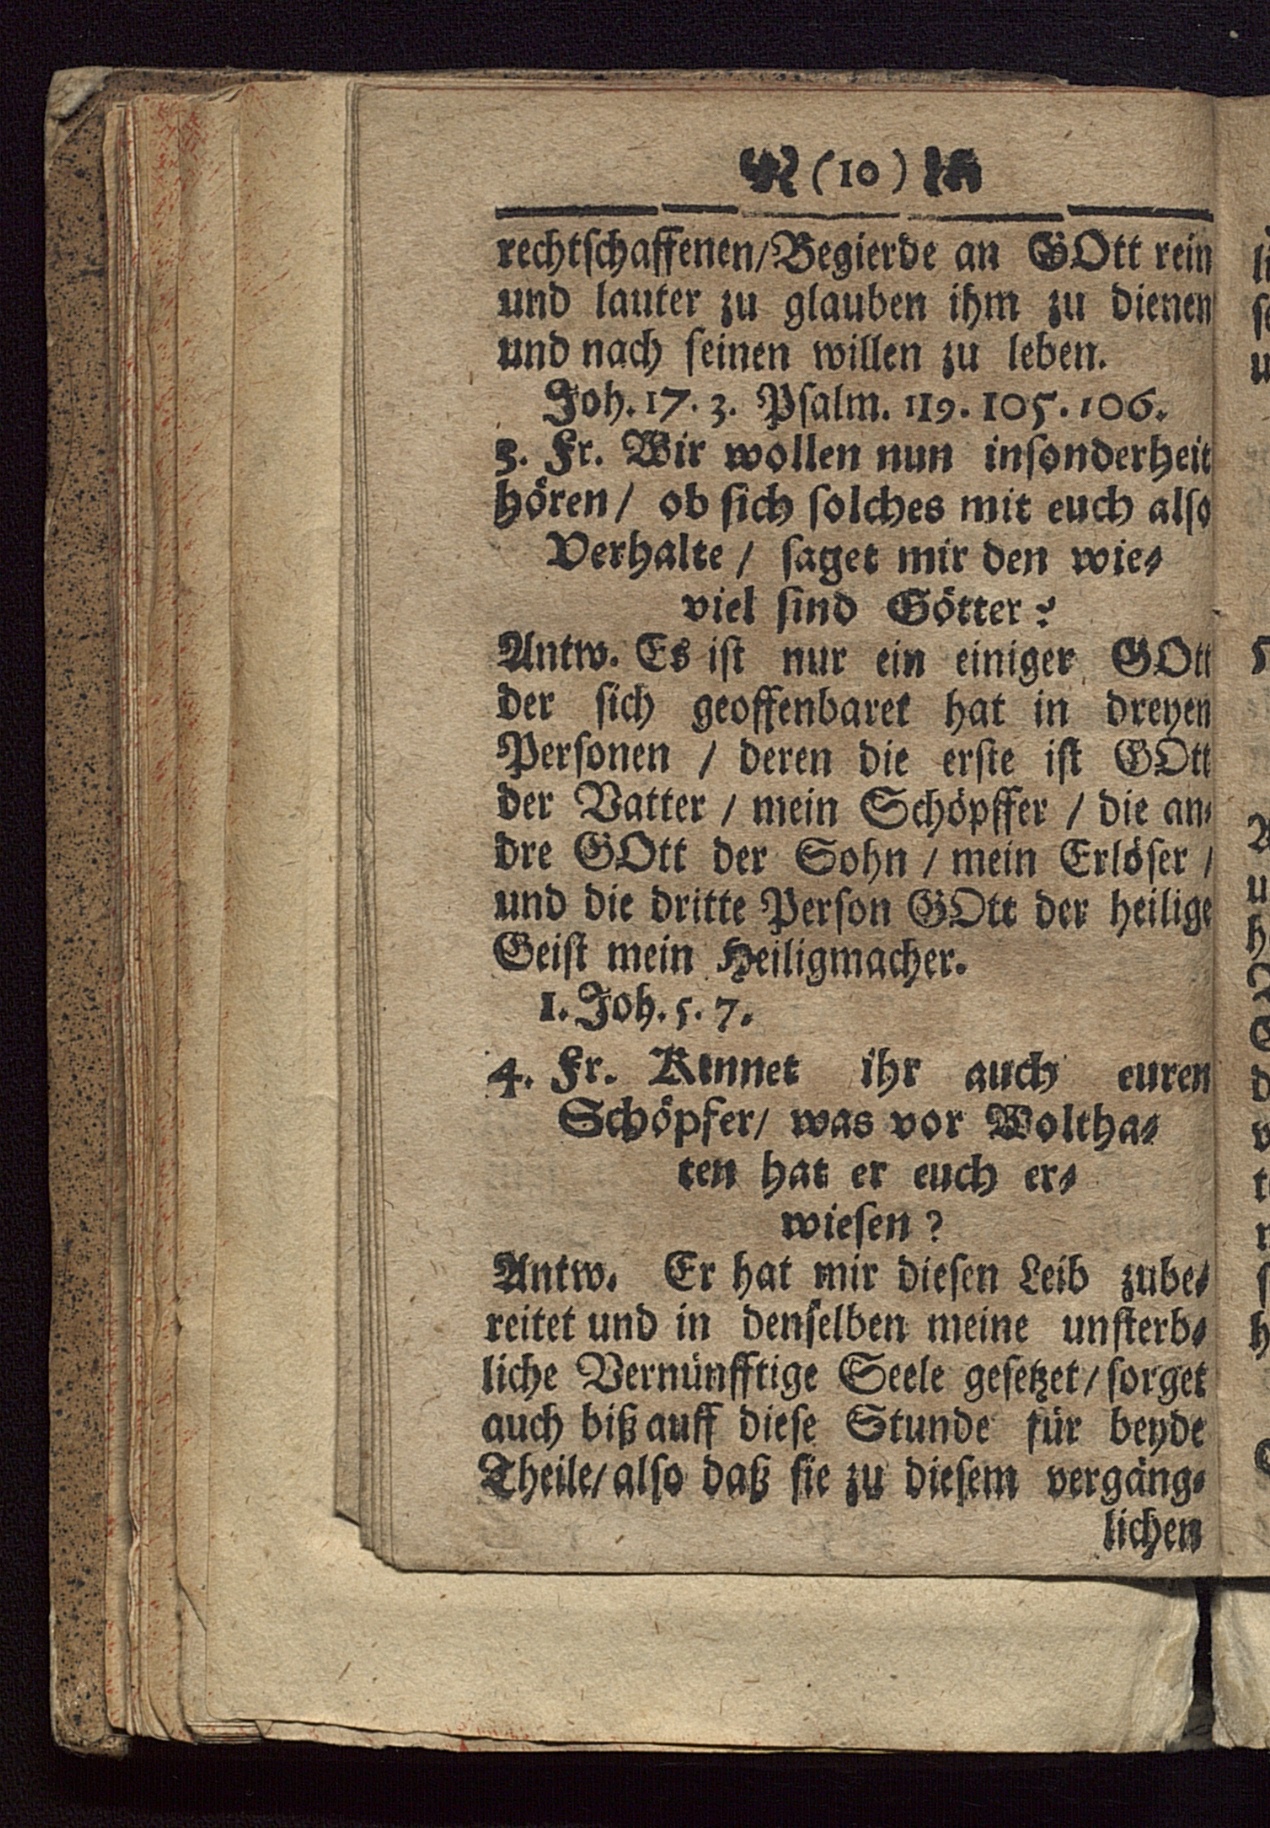 (10)
rechtschaffenen/Begierde an GOtt rein
und lauter zu glauben ihm zu dienen
und nach seinen willen zu leben.
Joh. 17. 3. Psalm. 119. 105. 106.
3. Fr. Wir wollen nun insonderheit
hören/ ob sich solches mit euch also
Verhalte / saget mir den wie-
viel sind Götter?
Antw. Es ist nur ein einiger GOtt
der sich geoffenbaret hat in dreyen
Personen / deren die erste ist GOtt
der Vatter / mein Schöpffer / die an-
dre GOtt der Sohn / mein Erlöser /
und die dritte Person GOtt der heilige
Geist mein Heiligmacher.
1. Joh. 5. 7.
4. Fr. Kennet ihr auch euren
Schöpfer/ was vor Woltha-
ten hat er euch er-
wiesen?
Antw. Er hat mir diesen Leib zube-
reitet und in denselben meine unsterb-
liche Vernünfftige Seele gesetzet/sorget
auch biß auff diese Stunde für beyde
Theile/also daß sie zu diesem vergäng-
lichen